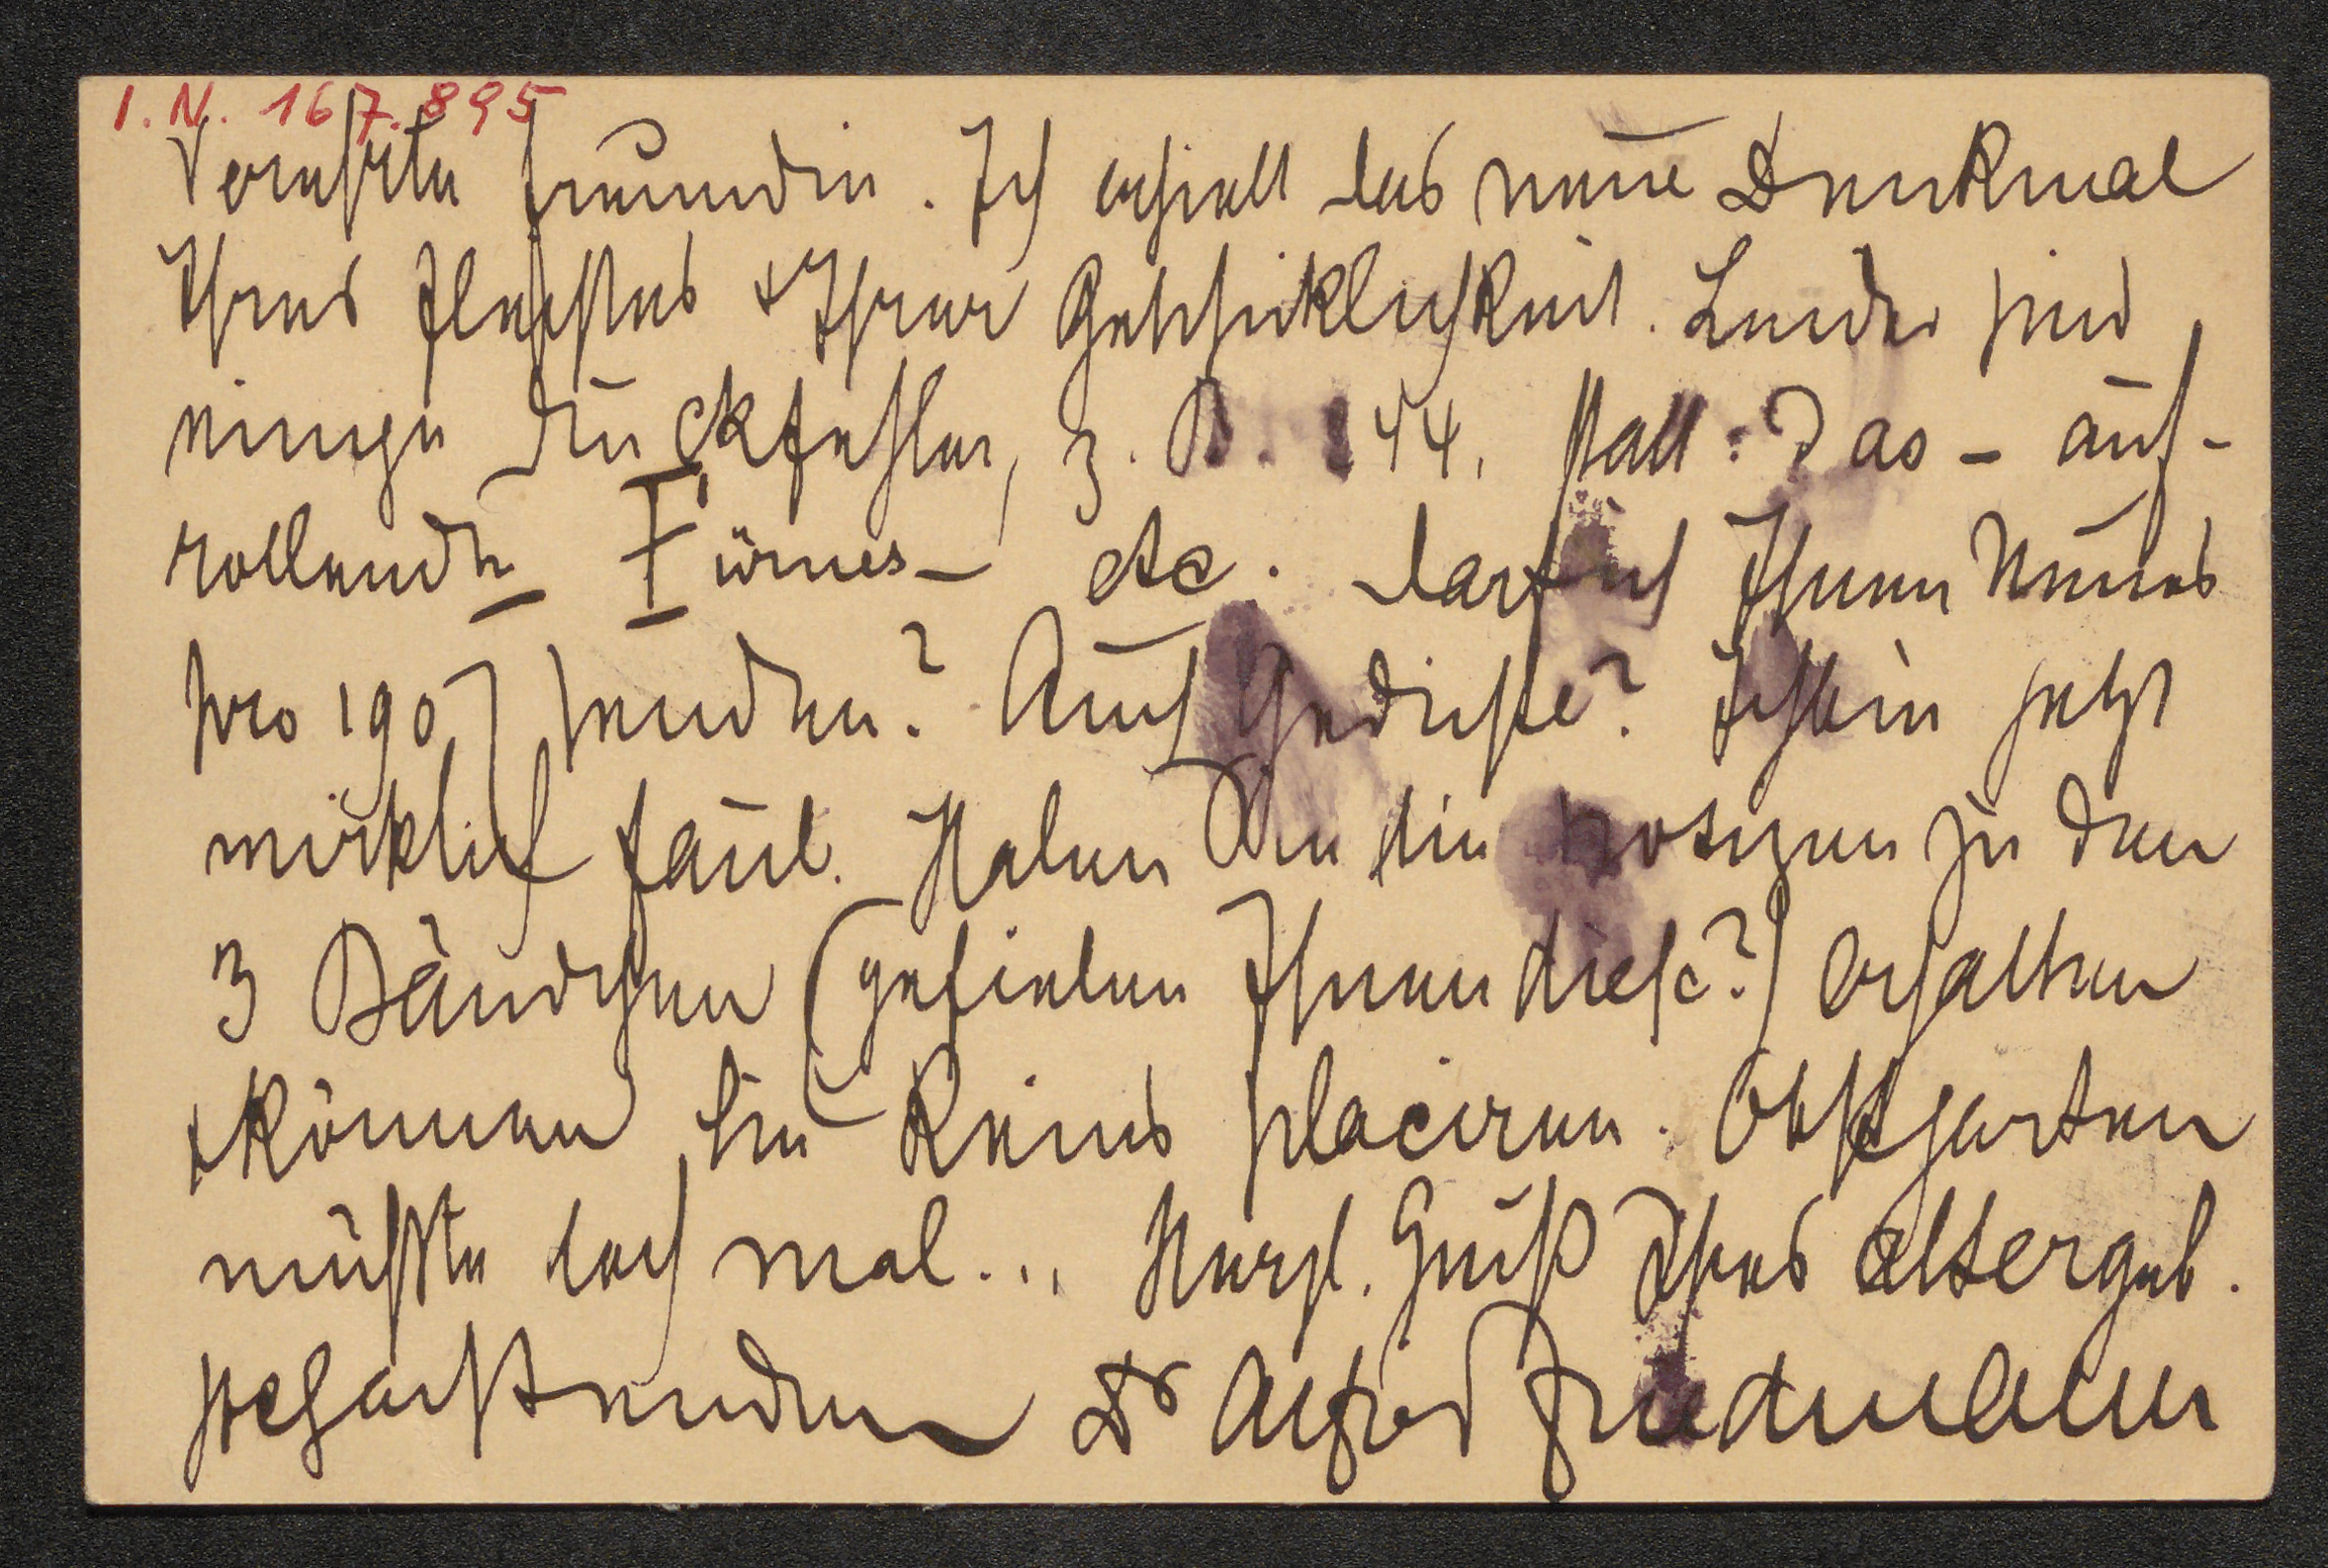 I.N. 167.895
Verehrte Freundin. Ich erhielt das neue Denkmal
Ihres Fleißes & Ihrer Geschicklichkeit. Leider sind
einige Druckfehler, z. B. 144. statt: Das – auf-
rollende Fürnes – etc. Darf ich Ihnen Neues
pro 1907 senden? Auch Gedichte? Ich bin jetzt
wirklich faul. Haben Sie die Notizen zu den
3 Bändchen (gefielen Ihnen diese?) erhalten
& können Sie keins placiren. Obstgarten
müßte doch mal... Herzl. Gruß Ihres altergeb.
hochachtenden Dr Alfred Friedmann